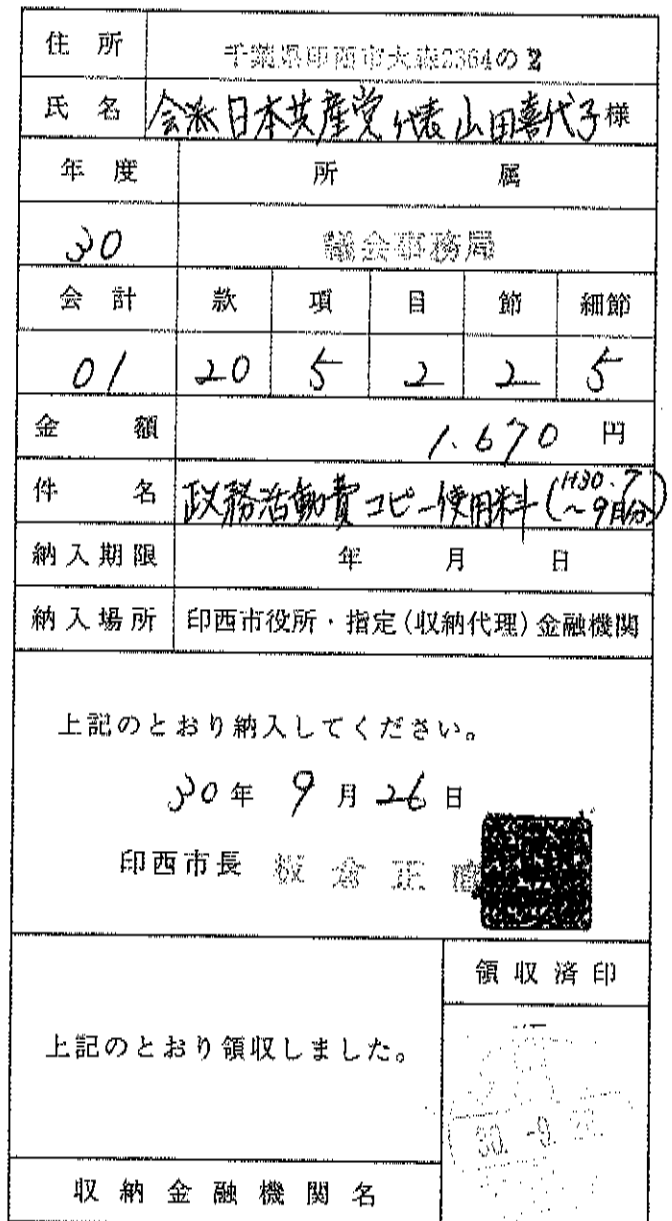 住所 千葉県印西市大森2364の2
氏名 会派日本共産党代表山田喜代子様
年度 所属
30 議会事務局
会計 款 項 目 節 細節
01 20 5 2 2 5
金額 1.670円
件名 政務活動費コピー使用料(H30.7~9月分)
納入期限 年 月 日
納入場所 印西市役所・指定(収納代理)金融機関
上記のとおり納入してください。
30年 9月 26日
印西市長 板倉正直
領収済印
上記のとおり領収しました。
30. -9.
収納金融機関名